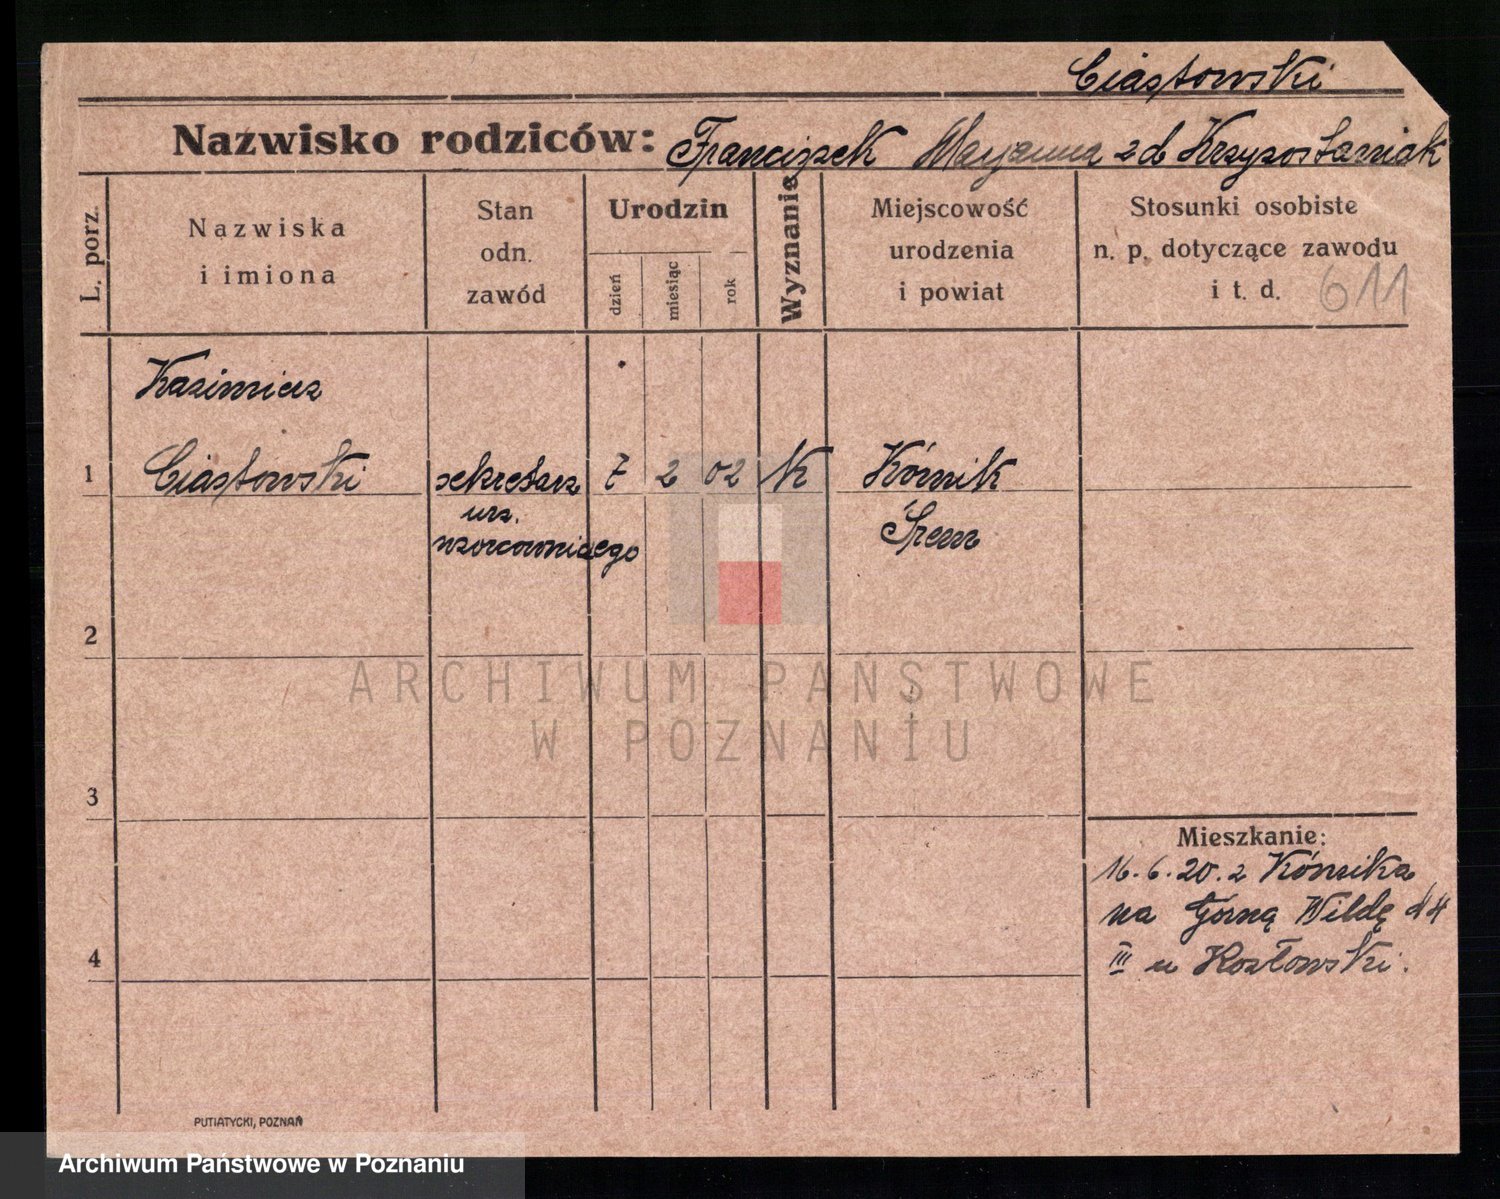 Ciastowski
Nazwisko rodziców: Franciszek Maryanna zd Krzyzostaniak
L. porz.
Nazwiska
i imiona
Stan
odn.
zawód
Urodzin
dzień
miesiąc
rok
Wyznanie
Miejscowość
urodzenia
i powiat
Stosunki osobiste
n. p. dotyczące zawodu
i t. d.
611
Kazimierz
1 Ciastowski sekretarz 7 2 02 K Kórnik
urz.
Śrem
2
ARCHIWUM PAŃSTWOWE
W POZNANIU
3
Mieszkanie:
16.6.20. z Kórnika
na Górną Wildę 44
4
III u Kozłowski.
PUTIATYCKI, POZNAŃ
Archiwum Państwowe w Poznaniu